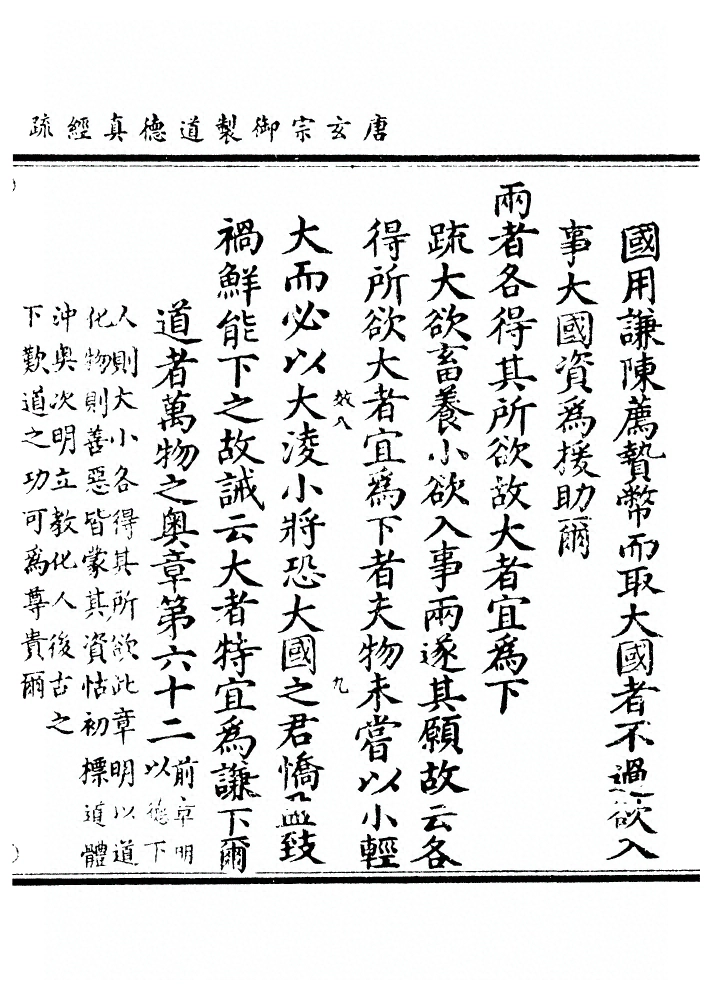 唐玄宗御製道德真經疏
國用謙陳薦贄幣而取大國者不過欲入
事大國資爲援助爾
兩者各得其所欲故大者宜爲下
疏大欲畜養小欲入事兩遂其願故云各
得所欲大者宜爲下者夫物未嘗以小輕
效八 九
大而必以大淩小將恐大國之君憍盈致
禍鮮能下之故誡云大者特宜爲謙下爾
道者萬物之奧章第六十二
前章明
以德下
人則大小各得其所欲此章明以道
化物則善惡皆蒙其資怙初標道體
沖奧次明立教化人後古之
下歎道之功可爲尊貴爾